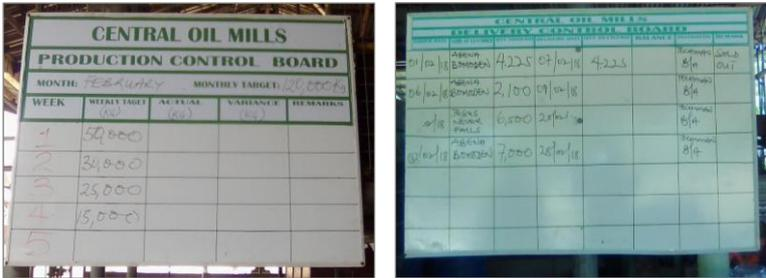 CENTRAL OIL MILLS
PRODUCTION CONTROL BOARD
MONTH: FEBRUARY MONTHLY TARGET: 120,000Kg
WEEK WEEKLY TAGET (KG) ACTUAL (KG) VARIANCE (KG) REMARKS
1 50,000
2
3 25,000
4 15,000
5
CENTRAL OIL MILLS
DELIVERY CONTROL BOARD
BALANCE REMARK
01/02/18 ABENA BOMODEN 4.225 07/02/18 4.225 B/A SOLD OUT
06/02/18 ABENA BOMODEN 2,100 09/02/18 B/A
NEVER FAILS 6,500 B/A
ABENA BOMODEN 7,000 28/02/18 B/A